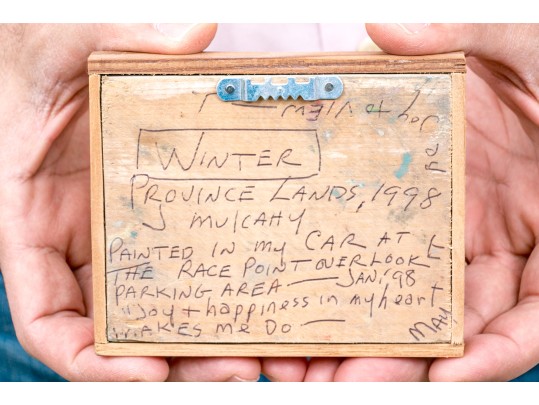 WINTER
PROVINCE LANDS, 1998
J MulCAHY
PAINTED IN my CAR AT
THE RACE POINT OVERLOOK
PARKING AREA — JAN, '98
"Joy + happiness in my heart
MAKES me DO —
MAY
Joy to VIEW —